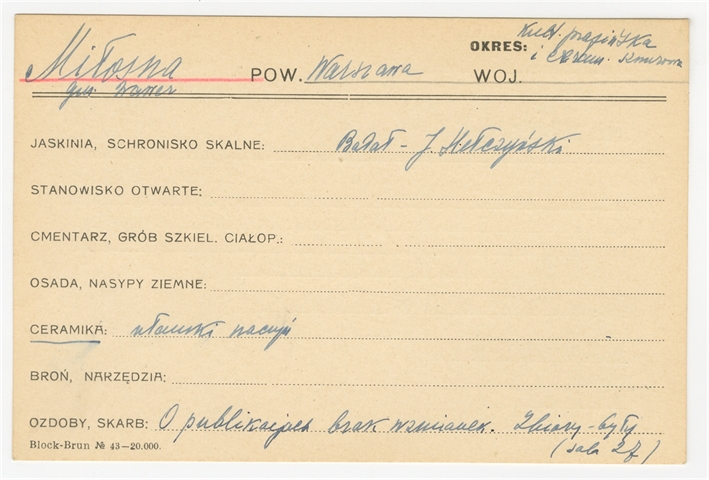 Miłosna POW. Warszawa OKRES: kult. prapińska WOJ.
gm. Wawer i
JASKINIA, SCHRONISKO SKALNE: Badał – J. Hełczyński
STANOWISKO OTWARTE:
CMENTARZ, GRÓB SZKIEL. CIAŁOP.:
OSADA, NASYPY ZIEMNE:
CERAMIKA: ułamki naczyń
BROŃ, NARZĘDZIA:
OZDOBY, SKARB: O publikacjach brak wzmianek. Zbiory – były
Block-Brun № 43–20.000. (sala 27)